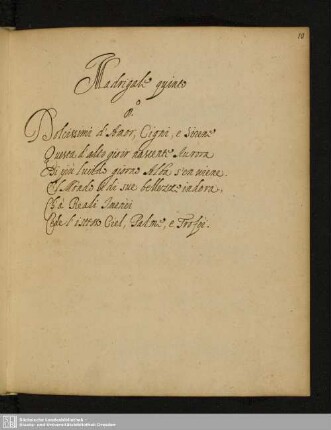 10
Madrigale quinto
Dolcissimi d'Amor, Cigni, e Sirene
Questa d'alto gioir nascente Aurora
Di più lucido giorno Alba s'en viene.
Il Mondo di sue bellezze indora,
Ch'à Reali Imenei
Cede l'istesso Ciel, Palme, e Trofei.
Sächsische Landesbibliothek
Staats- und Universitätsbibliothek Dresden